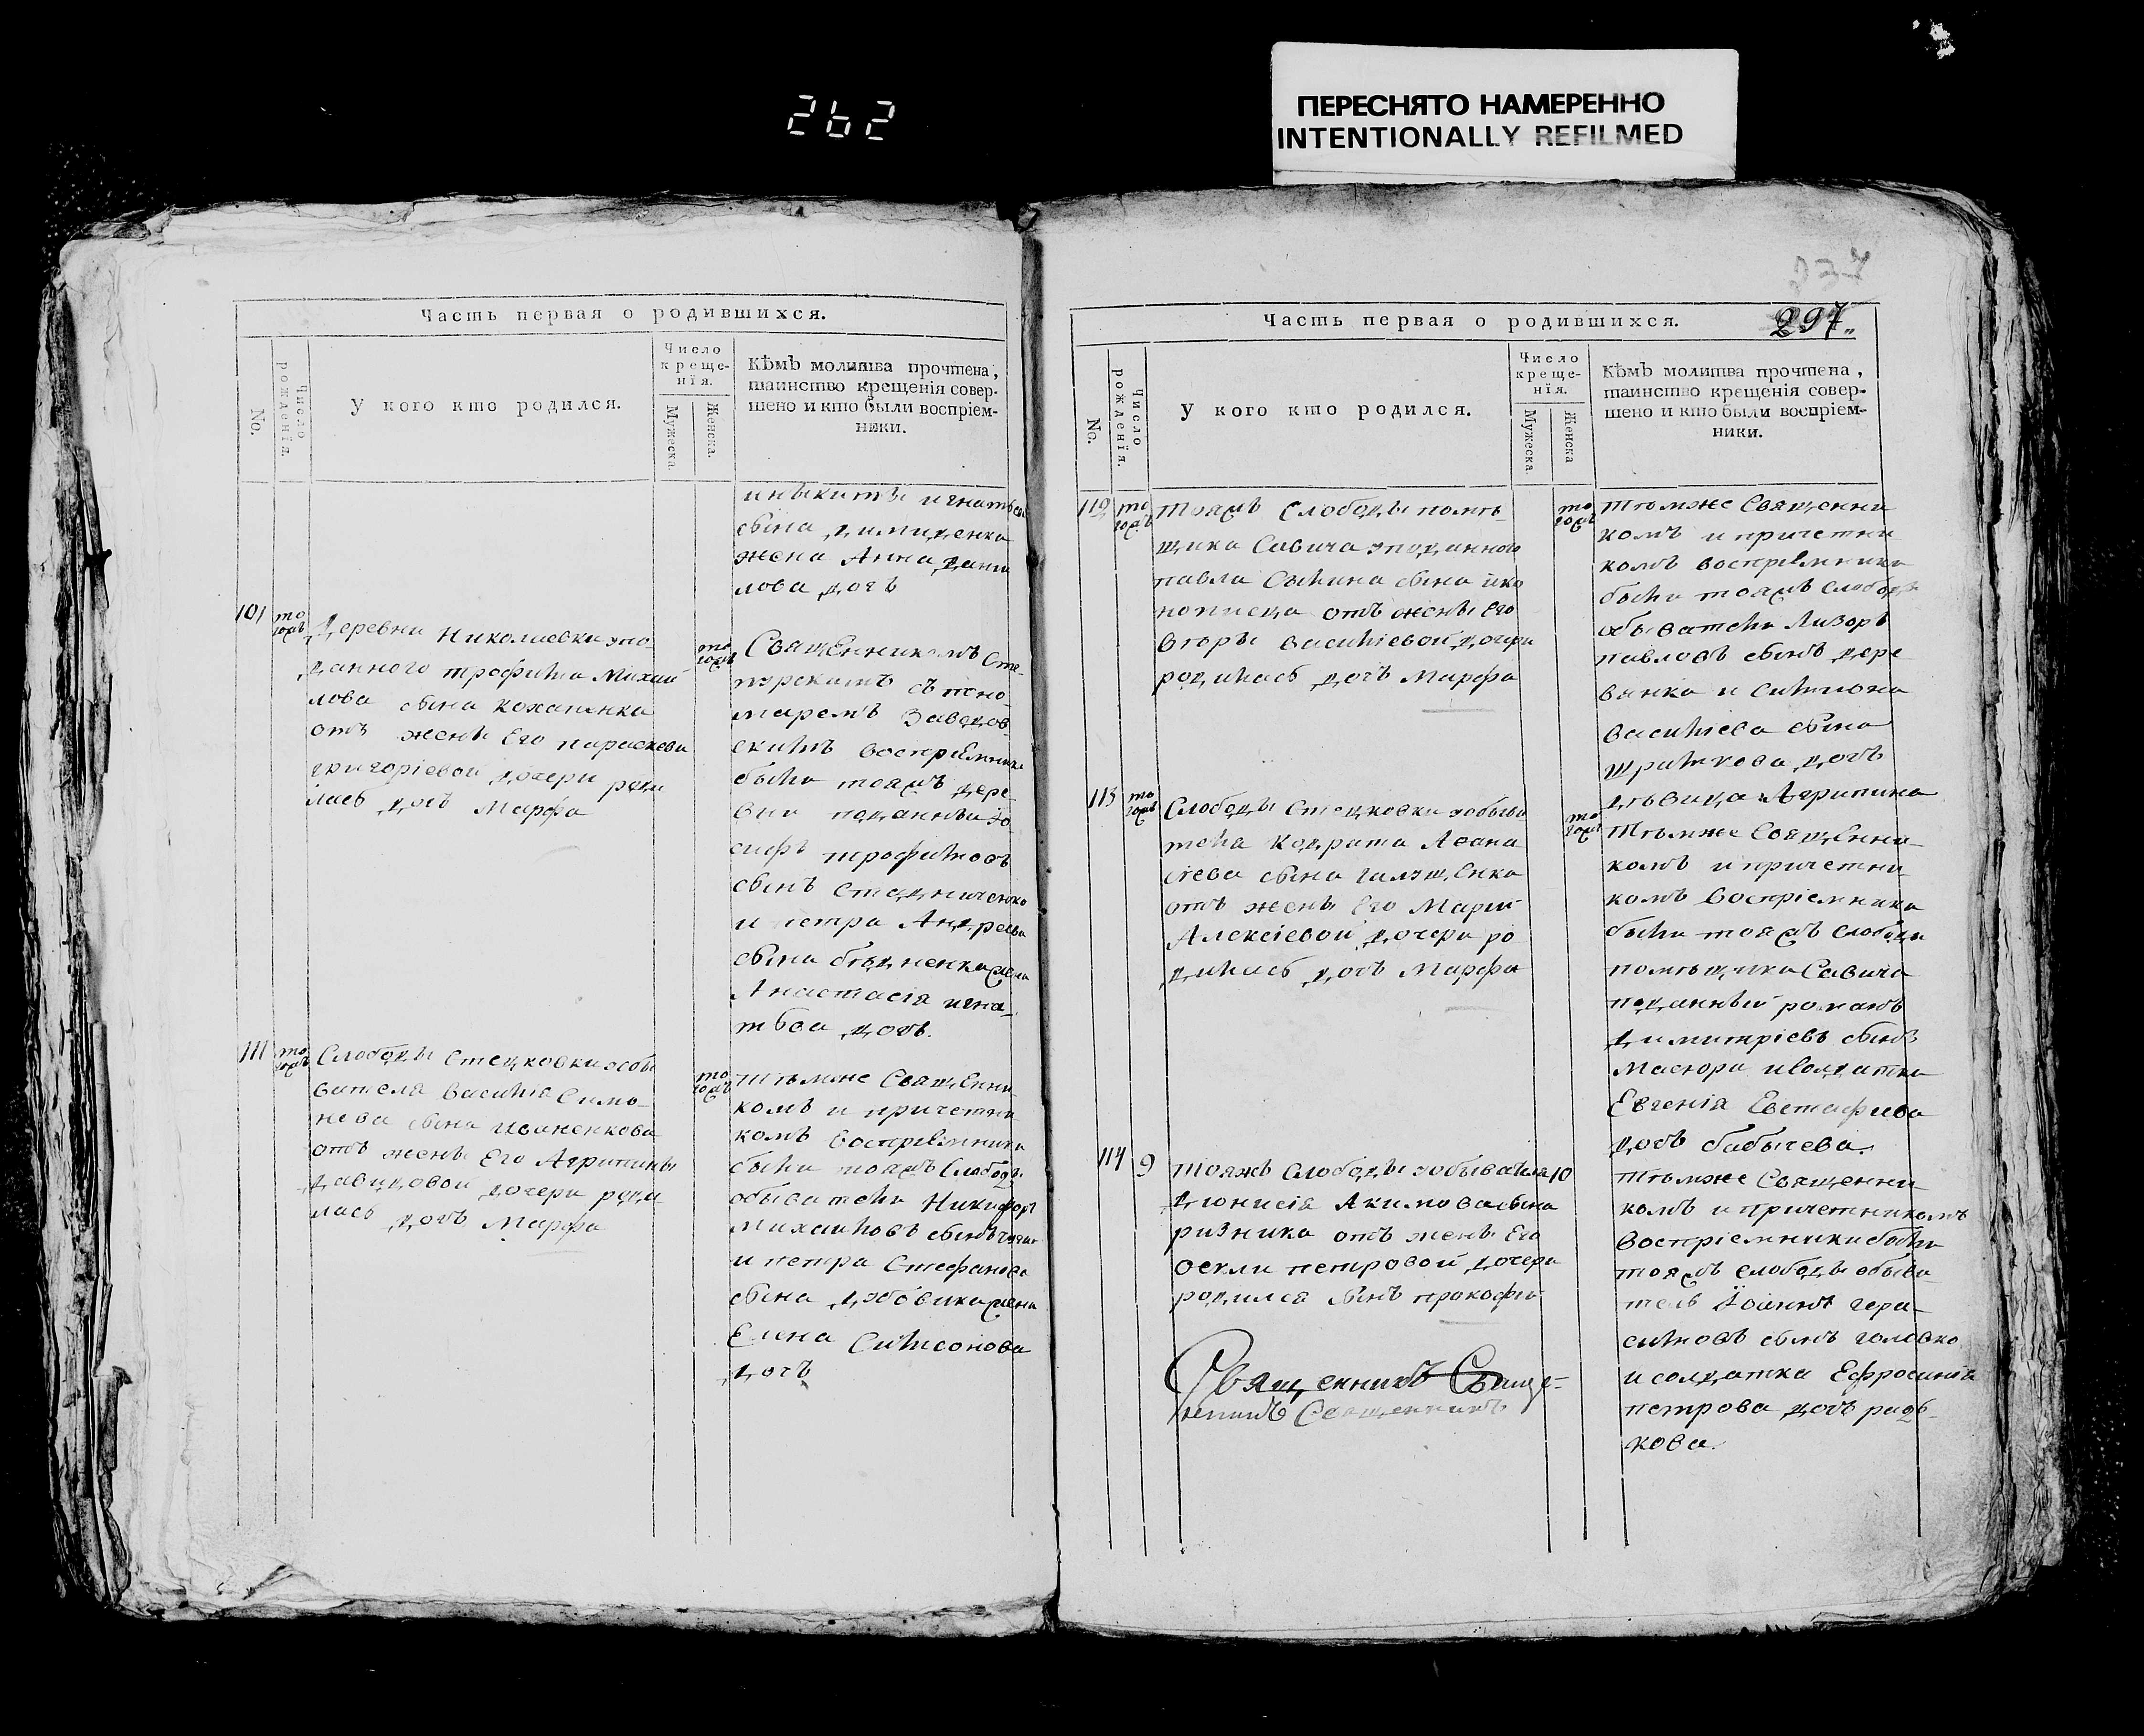 262
ПЕРЕСНЯТО НАМЕРЕННО
INTENTIONALLY REFILMED
Часть первая о родившихся.
No.
Число рожденїя.
У кого кто родился.
Число крещенїя.
Мужеска
Женска.
Кѣмъ молитва прочтена,
таинство крещенїя совер-
шено и кто были воспрїем-
ники.
сына Димиденка
жена Анна Дани
лова дочь
101
того жъ
Деревни Николаевки упо
данного трофима Михай
лова сына
отъ жены Его параскеви
григорїевой дочери роди
лась дочь Марфа
того жъ
СвящЕнникомъ Сте-
съ поно
маремъ
воспрїЕмники
были тояжъ дере
вни поданный Ио
сифъ трофимовъ
сынъ
и петра Андреева
сына жена
Анастасїя игна
тьева дочь.
111
того жъ
Слободы Стецковки уобы
вателя василїя Симо-
нова сына Иваненкова
отъ жены Его Агрипины
Давидовой дочери роди
лась дочь Марфа
того жъ
тѣмже СвящЕнни
комъ и причетни
комъ воспрїЕмники
были тояжъ Слободы
обыватели Никифоръ
Михайловъ сынъ
и петра Стефанова
сына жена
Елена Симсонова
дочь
Часть первая о родившихся.
297.
No.
Число рожденїя.
У кого кто родился.
Число крещенїя.
Мужеска
Женска
Кѣмъ молитва прочтена,
таинство крещенїя совер-
шено и кто были воспрїем-
ники.
112
того жъ
тояжъ Слободы помѣ-
щика Савича уподанного
павла сына ико
нописца отъ жены Его
василїевой дочери
родилась дочь Марфа
того жъ
тѣмже Священни
комъ и причетни
комъ воспрїЕмники
были тояжъ слободы
обыватели Лазоръ
павловъ сынъ дере
вянка и Симиона
василїева сына
дочь
дѣвица Агрипина
113
того жъ
Слободы Стецковки уобыва
теля Кодрата Аѳана
сїева сына галущЕнка
отъ жены Его Марїи
Алексїевой дочери ро
дилась дочь Марфа
того жъ
Тѣмже СвящЕнни
комъ и причетни
комъ воспрїемники
были тояжъ слободы
помѣщика Савича
поданный романъ
Димитрїевъ сынъ
Мастора и солдатка
Евгенїя Евстафиева
дочь бабычева.
114
9
тояжъ слободы уобывателя
Дионисїя Акимова сына
ризника отъ жены Его
Ѳеклы петровой дочери
родился сынъ прокофїй
10
тѣмже Священни
комъ и причетникомъ
воспрїемники были
тояжъ слободы обыва
тель Їоаннъ гера-
симовъ сынъ головко
и солдатка Ефросинїя
петрова дочь радь-
кова.
Священникъ Свяще-
нникъ Священникъ